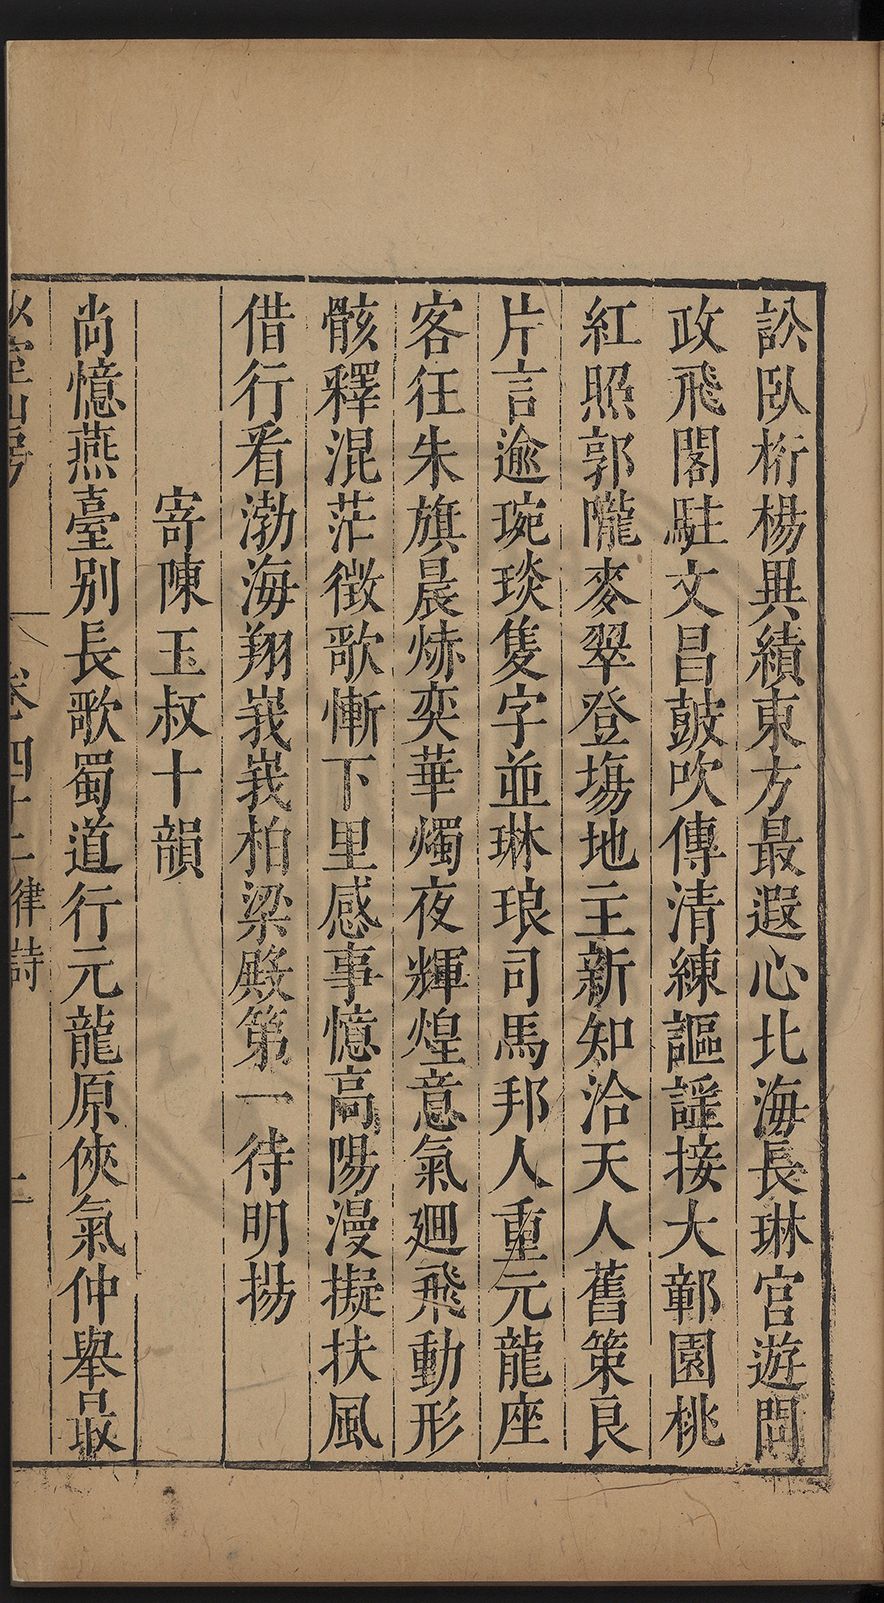 訟臥桁楊異績東方最遐心北海長琳宮遊閆
政飛閣駐文昌鼓吹傳清練謳謡接大鄣園桃
紅照郭隴麥翠登塲地主新知洽天人舊策良
片言逾琬琰隻字並琳琅司馬邦人重元龍座
客徃朱旗晨㶷奕華燭夜輝煌意氣廻飛動形
骸釋混茫徴歌慚下里感事憶高陽漫擬扶風
借行看渤海翔峩峩柏梁殿第一待明揚
寄陳玉叔十韻
尚憶燕臺别長歌蜀道行元龍原俠氣仲舉最
室山房 卷四十二律詩